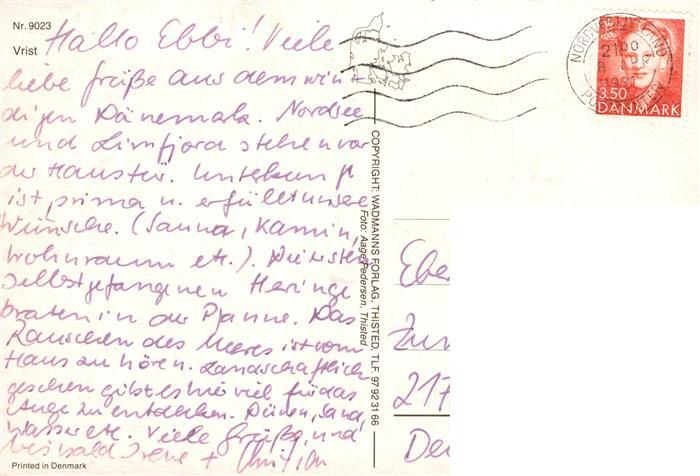 Nr. 9023
Vrist
Hallo Ebbi! Viele
liebe Grüße aus dem win-
digen Dänemark. Nordsee
und Limfjord stehen vor
der Haustür. Unterkunft
ist prima u. erfüllt unsere
Wünsche. (Sauna, Kamin,
Wohnraum etc.). Die ersten
selbstgefangenen Heringe
braten in der Pfanne. Das
Rauschen des Meeres ist vom
Haus zu hören. Landschaftlich
gesehen gibt es hier viel für das
Auge zu entdecken. Dünen, Sand,
Wasser etc. Viele Grüße, und
bis bald Irene +
Printed in Denmark
COPYRIGHT: WADMANNS FORLAG, THISTED, TLF. 97 92 31 66
Foto: Aage Pedersen, Thisted
2100
1991
3.50
DANMARK
Eber
Zur
217
Deu